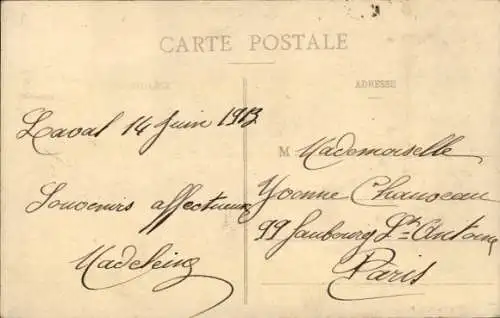 CARTE POSTALE
ADRESSE
Laval 14 Juin 1913
Souvenirs affectueux
Madeleine
M Mademoiselle
Yvonne Chauveau
99 faubourg St Antoine
Paris